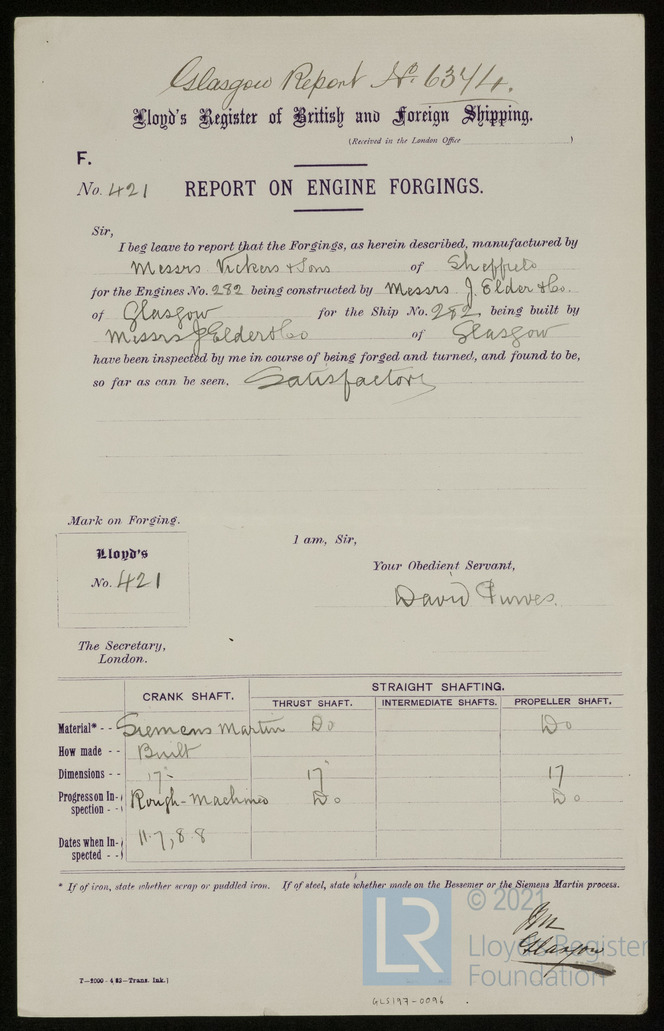 Glasgow Report No 6344.
Lloyd's Register of British and Foreign Shipping.
(Received in the London Office
F.
No. 421 REPORT ON ENGINE FORGINGS.
Sir,
I beg leave to report that the Forgings, as herein described, manufactured by
Messrs Vickers & Sons of Sheffield
for the Engines No. 282 being constructed by Messrs J. Elder & Co.
of Glasgow for the Ship No. 282 being built by
Messrs J Elder & Co of Glasgow
have been inspected by me in course of being forged and turned, and found to be,
so far as can be seen, Satisfactory
Mark on Forging.
I am, Sir,
Lloyd's
Your Obedient Servant,
No. 421
David Purves.
The Secretary,
London.
STRAIGHT SHAFTING.
CRANK SHAFT. THRUST SHAFT. INTERMEDIATE SHAFTS. PROPELLER SHAFT.
Material* - - Siemens Martin Do Do
How made - - Built
Dimensions - - 17" 17" 17
Progress on In-
spection - - Rough-Machined Do Do
Dates when In-
spected - - 11.7,8.8
* If of iron, state whether scrap or puddled iron. If of steel, state whether made on the Bessemer or the Siemens Martin process.
© 2021
LR Lloyd's Register
Foundation
Glasgow
T—2000—4 83—Trans. Ink.)
GLS197-0096